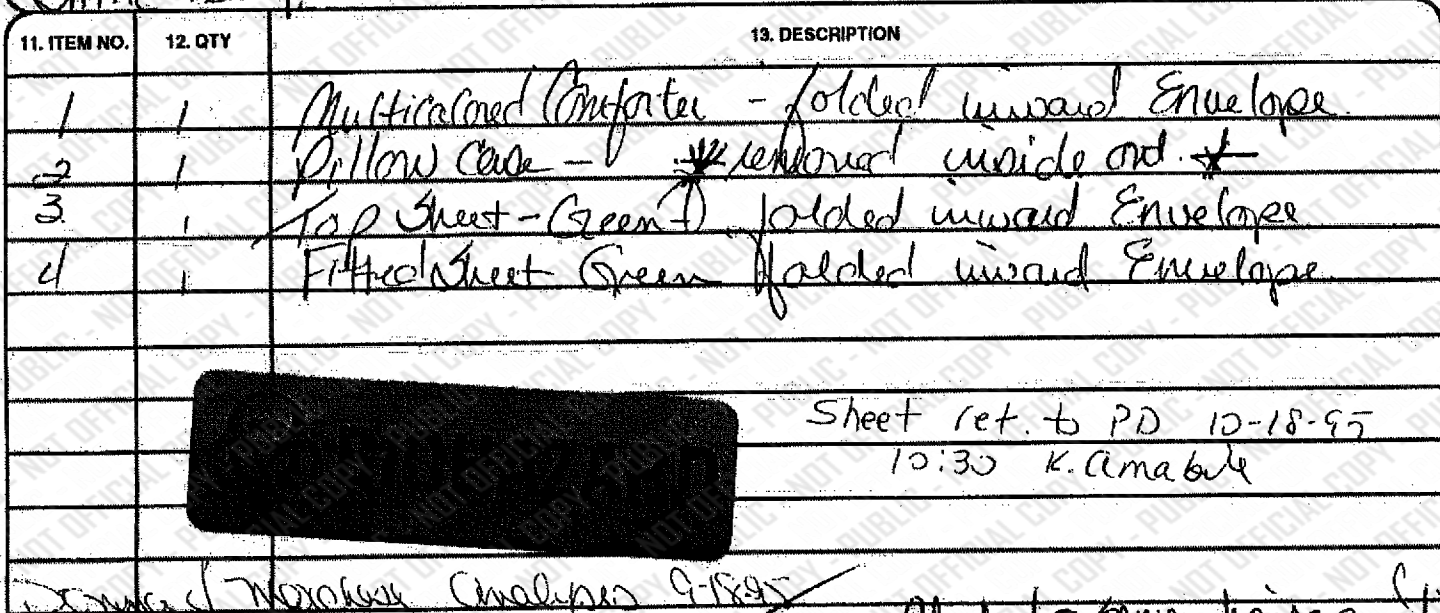 11. ITEM NO. 12. QTY 13. DESCRIPTION
1 1 Multicolored Comforter - folded inward Envelope.
2 1 Pillow Case - * removed inside out. *
3. 1 Top Sheet - Green - folded inward Envelope
4 1 Fitted Sheet Green folded inward Envelope.
Sheet ret. to PD 10-18-95
10:30 K. Amabile
Analysis 9-18-95
NOT OFFICIAL COPY - PUBLIC